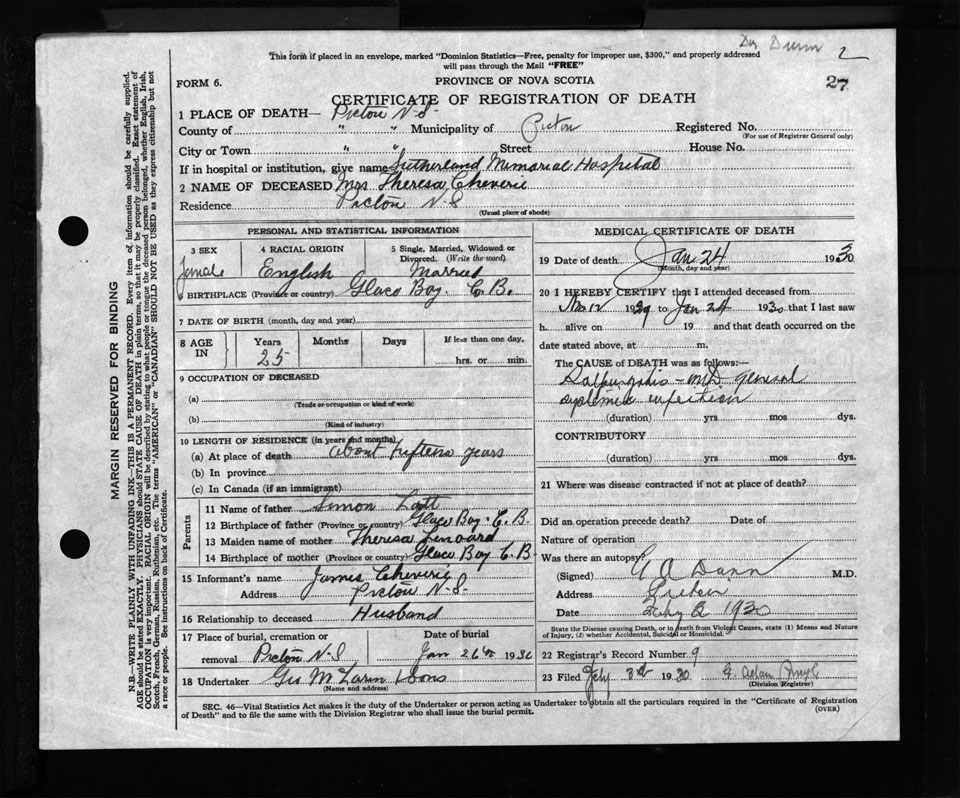 Dr Dunn 2
This form if placed in an envelope, marked "Dominion Statistics—Free, penalty for improper use, $300," and properly addressed
will pass through the Mail "FREE"
FORM 6.
PROVINCE OF NOVA SCOTIA
27
CERTIFICATE OF REGISTRATION OF DEATH
1 PLACE OF DEATH— Pictou N.S.
County of " " Municipality of Pictou Registered No.
(For use of Registrar General only)
City or Town " " Street House No.
If in hospital or institution, give name Sutherland Memorial Hospital
2 NAME OF DECEASED Mrs Theresa Cheverie
Residence Pictou N.S
(Usual place of abode)
PERSONAL AND STATISTICAL INFORMATION
3 SEX 4 RACIAL ORIGIN 5 Single, Married, Widowed or
Divorced. (Write the word)
Female English Married
6 BIRTHPLACE (Province or country) Glace Bay. C.B.
7 DATE OF BIRTH (month, day and year)
8 AGE IN Years Months Days If less than one day,
25 hrs. or min.
9 OCCUPATION OF DECEASED
(a)
(Trade or occupation or kind of work)
(b)
(Kind of industry)
10 LENGTH OF RESIDENCE (in years and months)
(a) At place of death about fifteen years
(b) In province
(c) In Canada (if an immigrant)
Parents
11 Name of father Simon Lott
12 Birthplace of father (Province or country) Glace Bay. C.B.
13 Maiden name of mother Theresa
14 Birthplace of mother (Province or country) Glace Bay C.B
15 Informant's name James Cheverie
Address Pictou N-S-
16 Relationship to deceased Husband
17 Place of burial, cremation or Date of burial
removal Pictou N.S Jan 26th 1930
18 Undertaker Geo McLaren & Sons
(Name and address)
MEDICAL CERTIFICATE OF DEATH
19 Date of death Jan 24 1930
(Month, day and year)
20 I HEREBY CERTIFY that I attended deceased from
1929 to Jan 24 1930 that I last saw
h alive on 19 and that death occurred on the
date stated above, at m.
The CAUSE OF DEATH was as follows:—
general
systemic infection
(duration) yrs mos dys.
CONTRIBUTORY
(duration) yrs mos dys.
21 Where was disease contracted if not at place of death?
Did an operation precede death? Date of
Nature of operation
Was there an autopsy
(Signed) G A Dunn M.D.
Address Pictou
Date Feby 3 1930
State the Disease causing Death, or in death from Violent Causes, state (1) Means and
Nature of Injury, (2) whether Accidental, Suicidal or Homicidal.
22 Registrar's Record Number 9
23 Filed Feby 3rd 1930
(Division Registrar)
SEC. 46—Vital Statistics Act makes it the duty of the Undertaker or person acting as Undertaker to obtain all the particulars required in the "Certificate of Registration
of Death" and to file the same with the Division Registrar who shall issue the burial permit.
(OVER)
MARGIN RESERVED FOR BINDING
N.B.—WRITE PLAINLY WITH UNFADING INK—THIS IS A PERMANENT RECORD. Every item of information should be carefully supplied.
AGE should be stated EXACTLY. PHYSICIANS should STATE CAUSE OF DEATH in plain terms, so that it may be properly classified. Exact statement of
OCCUPATION is very important. RACIAL ORIGIN will be described by stating to what people or tongue the deceased person belonged, whether English, Irish,
Scotch, French, German, Russian, Ruthenian, etc. The terms "AMERICAN" or "CANADIAN" SHOULD NOT BE USED as they express citizenship but not
a race or people. See instructions on back of Certificate.